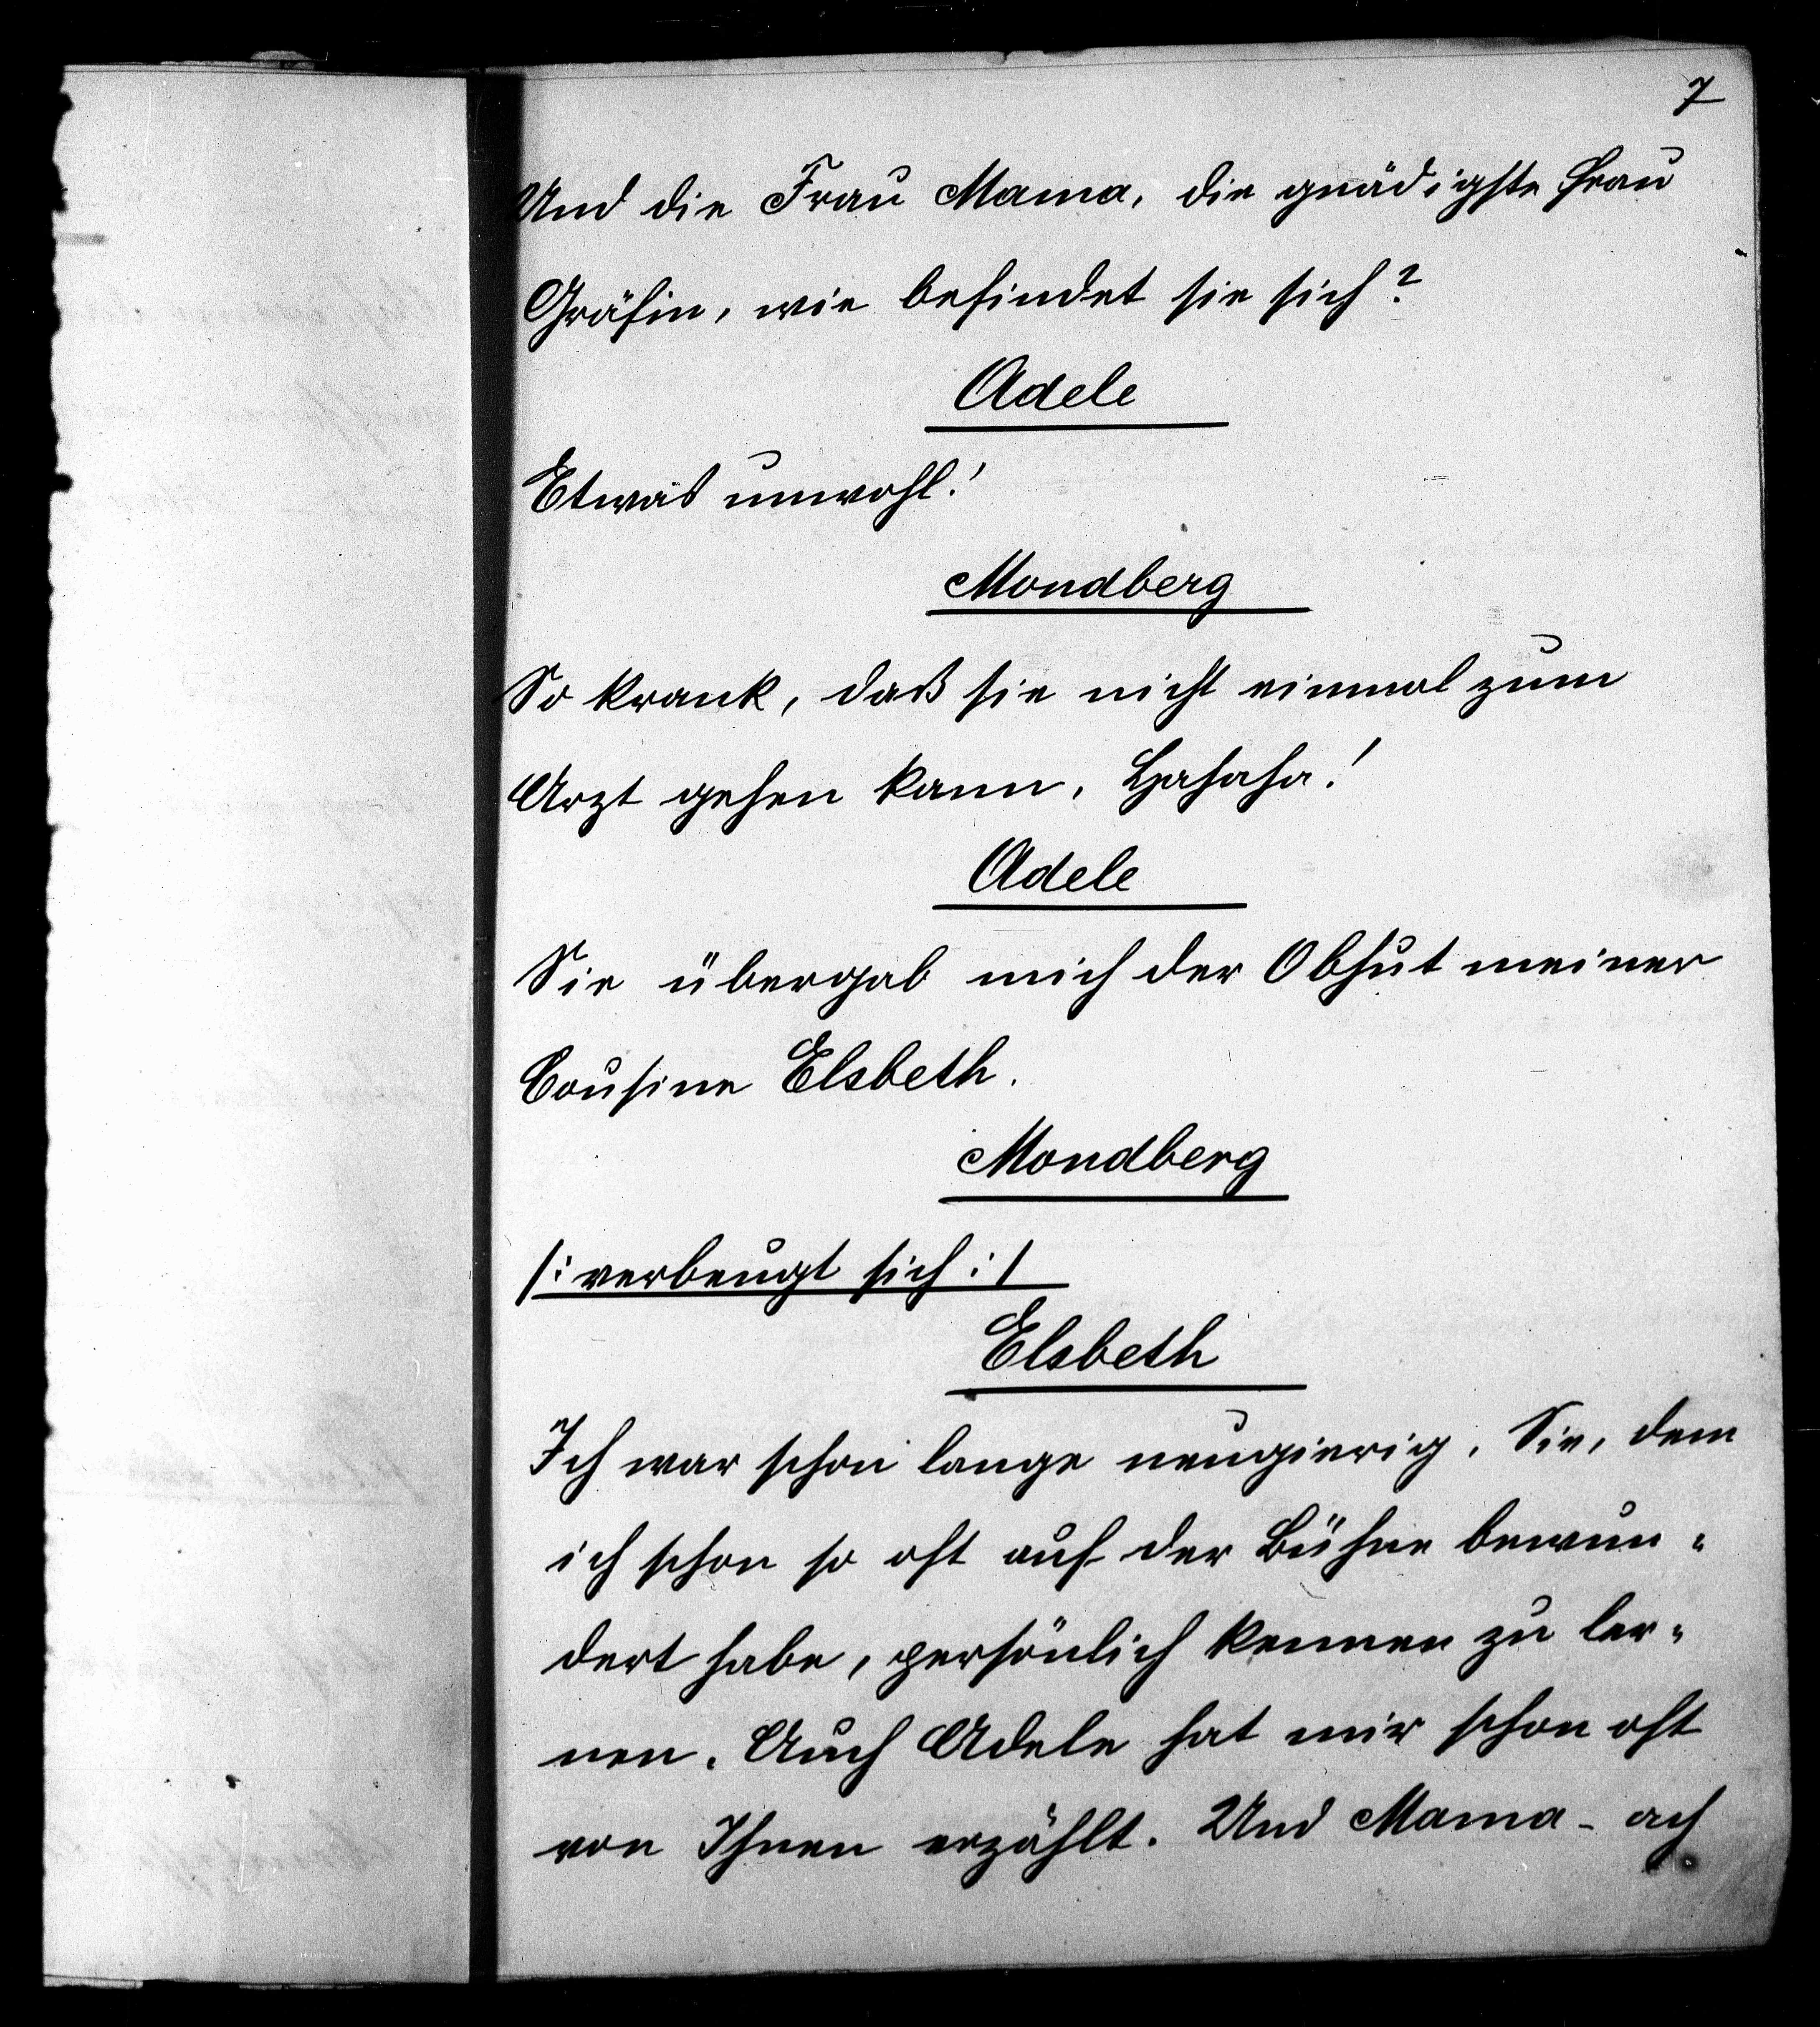 7
Und die Frau Mama, die gnädigste Frau
Gräfin, wie befindet sie sich?
Adele
Etwas unwohl!
Mondberg
So krank, daß sie nicht einmal zum
Arzt gehen kann, Hahaha!
Adele
Sie übergab mich der Obhut meiner
Cousine Elsbeth.
Mondberg
/: verbeugt sich :/
Elsbeth
Ich war schon lange neugierig, Sie, dem
ich schon so oft auf der Bühne bewun-
dert habe, persönlich kennen zu ler-
nen. Auch Adele hat mir schon oft
von Ihnen erzählt. Und Mama - ach